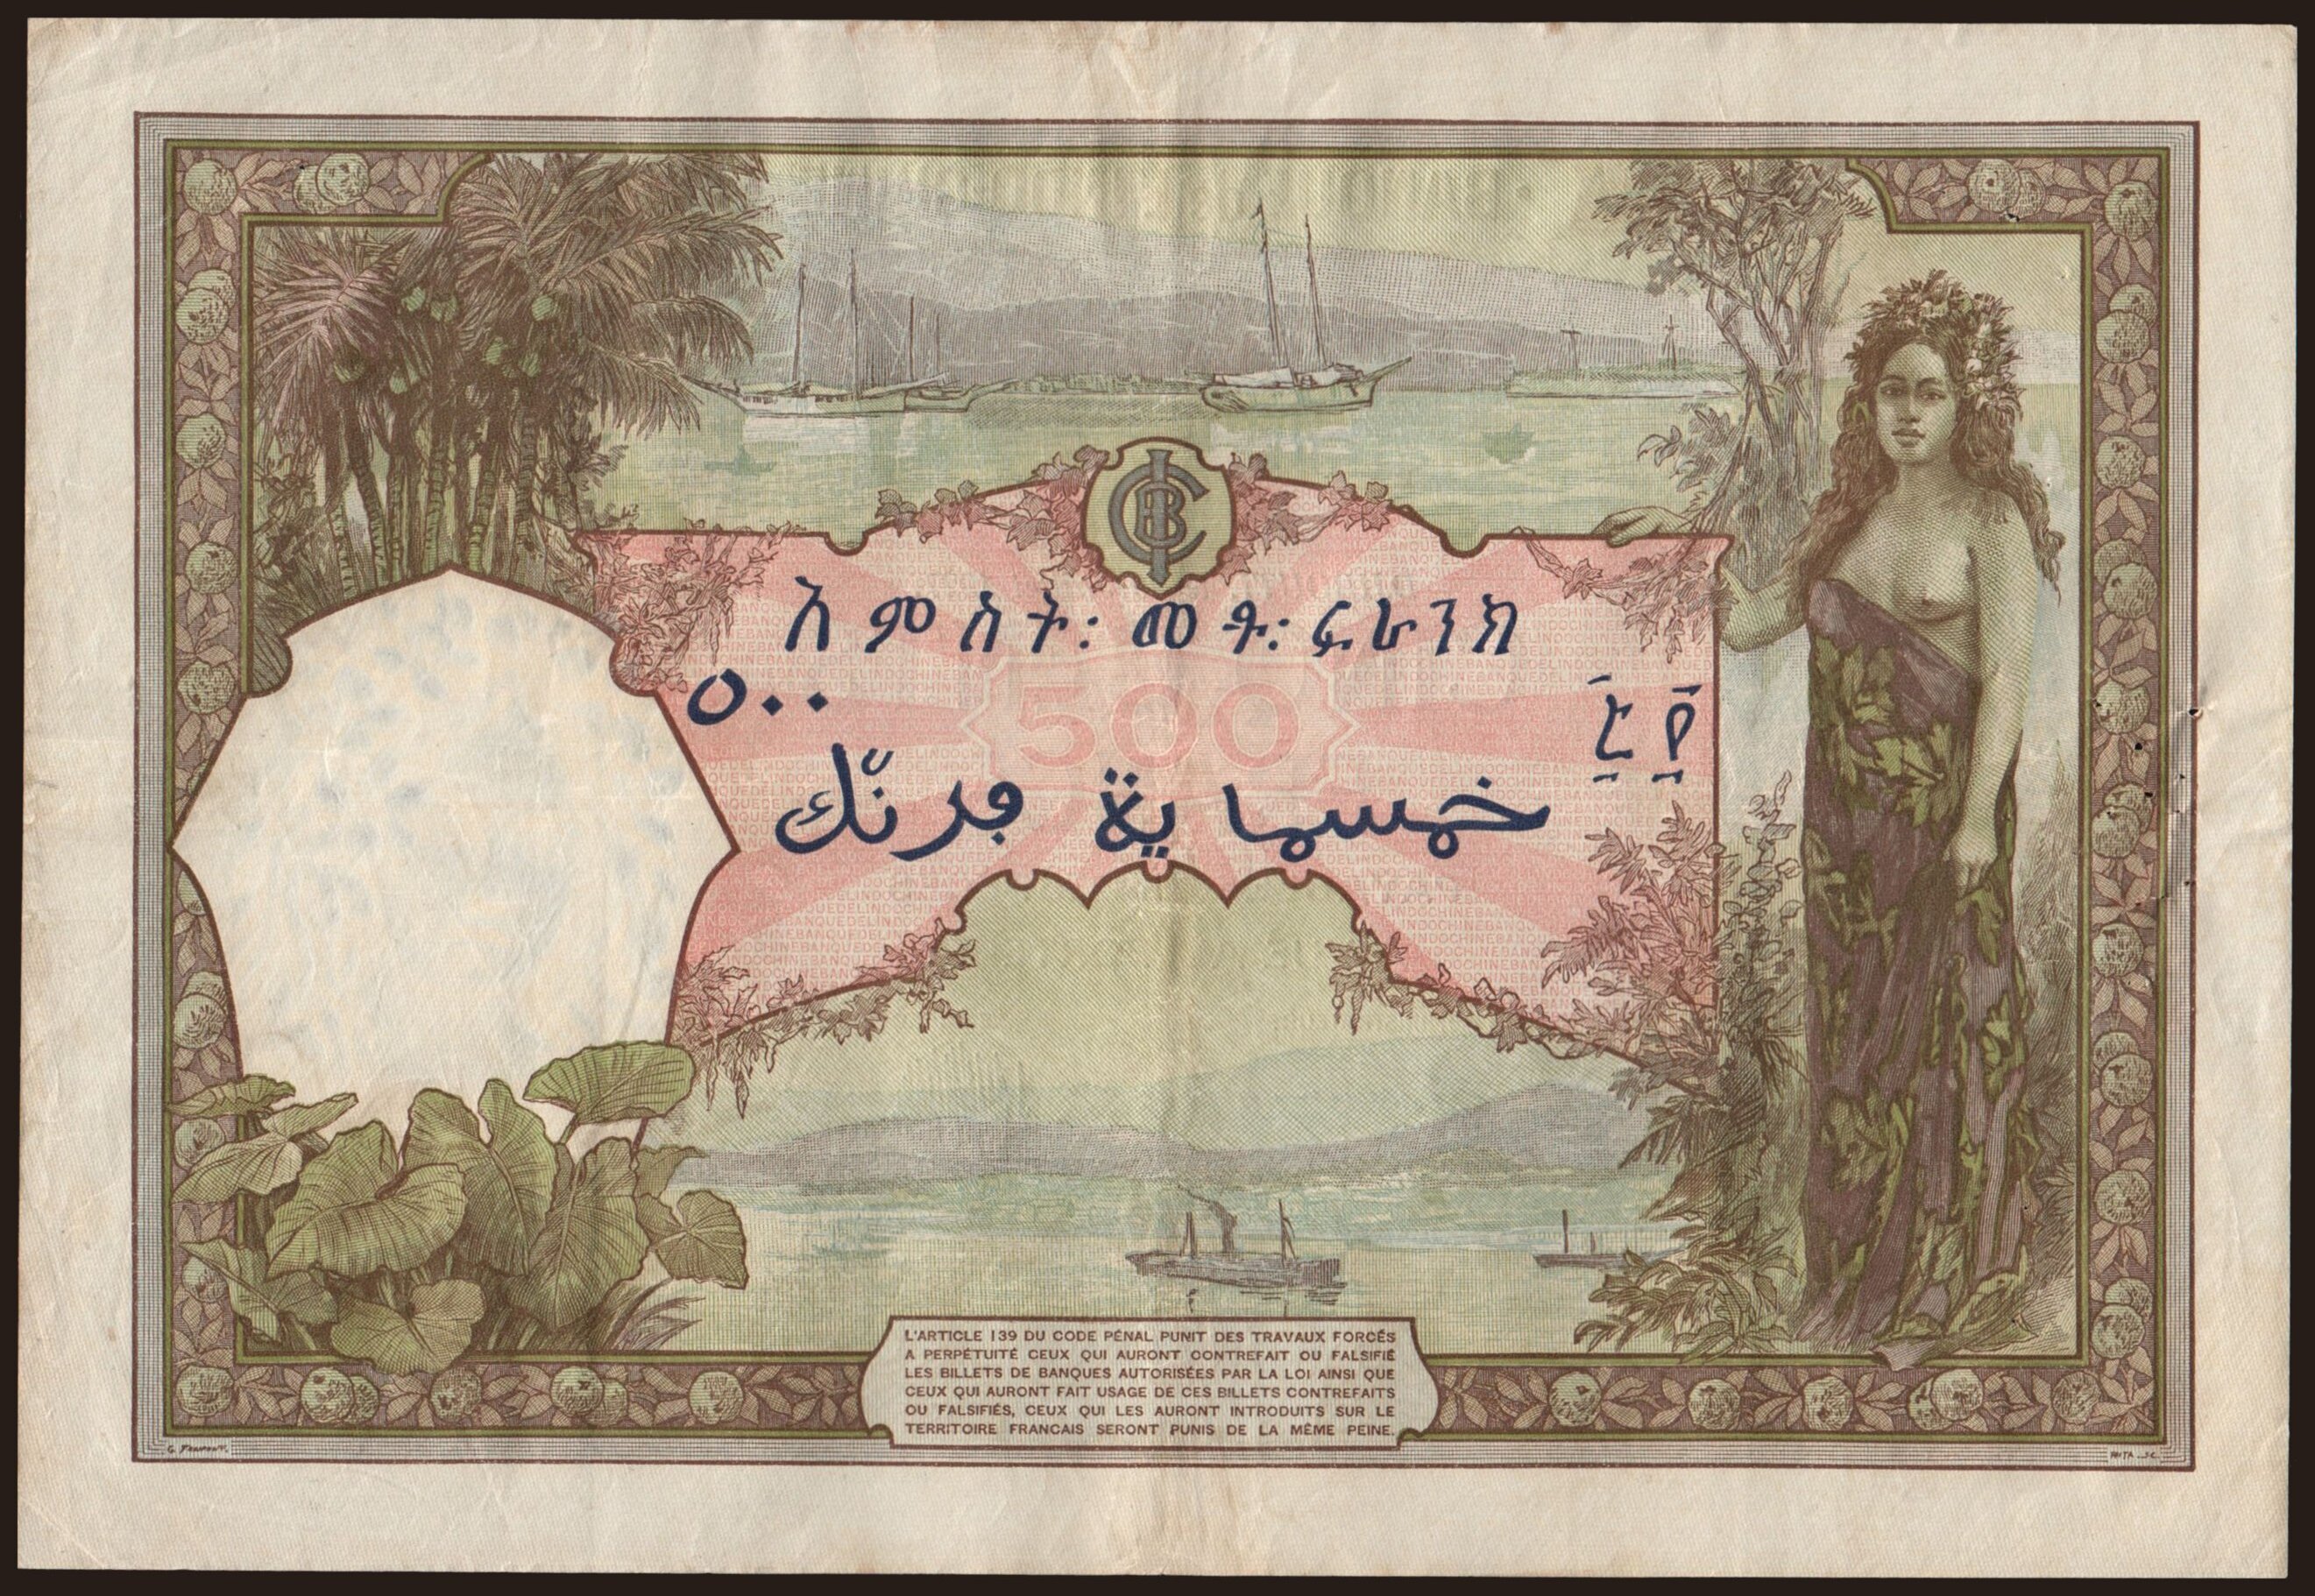 አምስት፡ መቶ፡ ፍራንክ
٥٠٠
፭ ፻
500
خمسماية فرنّك
L'ARTICLE 139 DU CODE PÉNAL PUNIT DES TRAVAUX FORCÉS
A PERPÉTUITÉ CEUX QUI AURONT CONTREFAIT OU FALSIFIÉ
LES BILLETS DE BANQUES AUTORISÉES PAR LA LOI AINSI QUE
CEUX QUI AURONT FAIT USAGE DE CES BILLETS CONTREFAITS
OU FALSIFIÉS, CEUX QUI LES AURONT INTRODUITS SUR LE
TERRITOIRE FRANCAIS SERONT PUNIS DE LA MÊME PEINE.